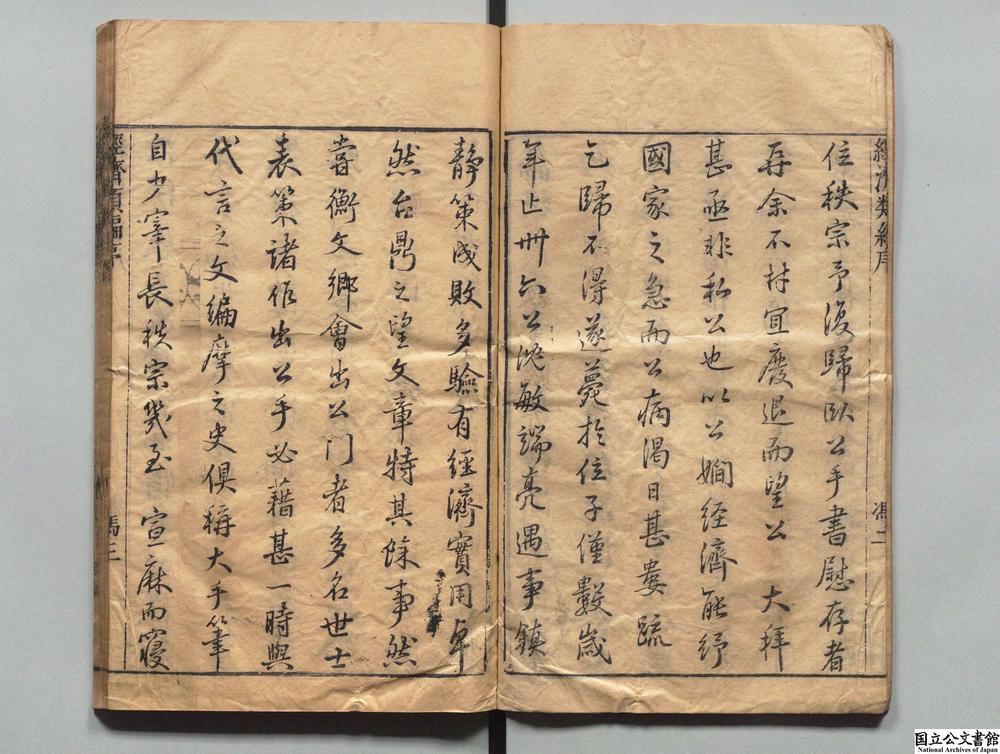 經濟類編序
馮二
位秩宗予復歸臥公手書慰存者
再余不材宜廢退而望公 大拜
甚亟非私公也以公嫺経濟能紓
國家之急而公病渴日甚婁疏
乞歸不得遂薨於位子僅數歲
年止卌六公沈敏端亮遇事鎮
靜策成敗多驗有經濟實用卓
然台鼎之望文章特其餘事然
嘗衡文鄉會出公門者多名世士
表策諸作出公手必藉甚一時與
代言之文編摩之史俱稱大手筆
自少宰長秩宗幾至 宣麻而寢
經濟類編序
馮三
国立公文書館
National Archives of Japan